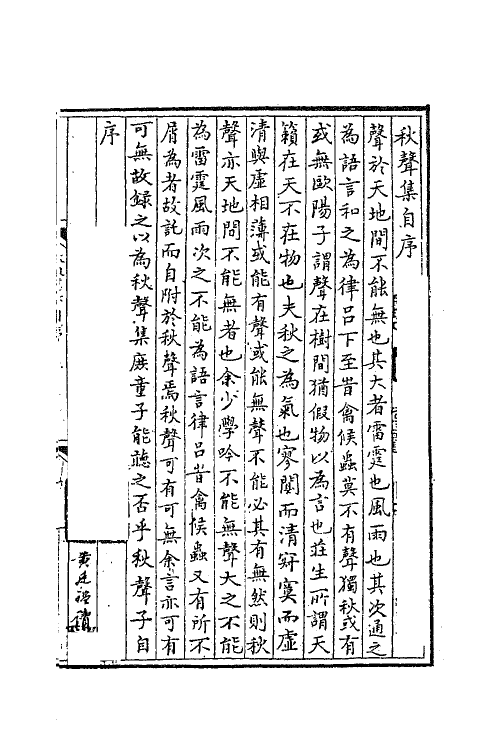 秋聲集自序
聲於天地間不能無也其大者雷霆也風雨也其次通之
為語言和之為律吕下至昔禽候蟲莫不有聲獨秋或有
或無歐陽子謂聲在樹間猶假物以為言也莊生所謂天
籟在天不在物也夫秋之為氣也寥闃而清窈寞而虛
清與虛相薄或能有聲或能無聲不能必其有無然則秋
聲亦天地間不能無者也余少學吟不能無聲大之不能
為雷霆風雨次之不能為語言律吕昔禽候蟲又有所不
屑為者故託而自附於秋聲焉秋聲可有可無余言亦可有
可無故録之以為秋聲集庶童子能聽之否乎秋聲子自
序